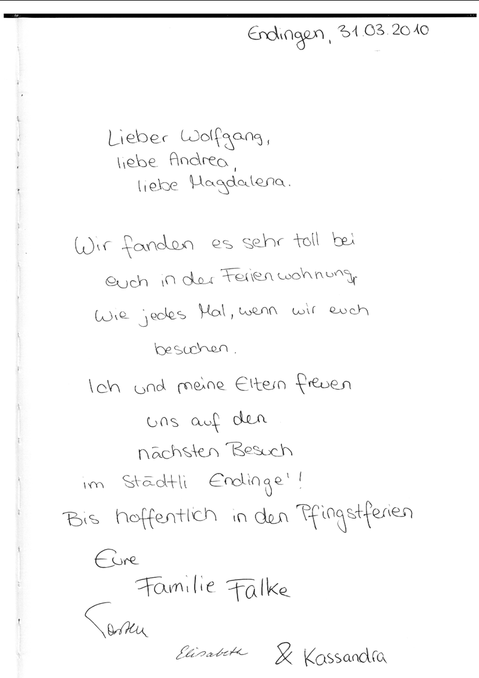 Endingen, 31.03.2010
Lieber Wolfgang,
liebe Andrea,
liebe Magdalena.
Wir fanden es sehr toll bei
euch in der Ferienwohnung,
wie jedes Mal, wenn wir euch
besuchen.
Ich und meine Eltern freuen
uns auf den
nächsten Besuch
im Städtli Endinge'!
Bis hoffentlich in den Pfingstferien
Eure
Familie Falke
Torsten
Elisabeth & Kassandra